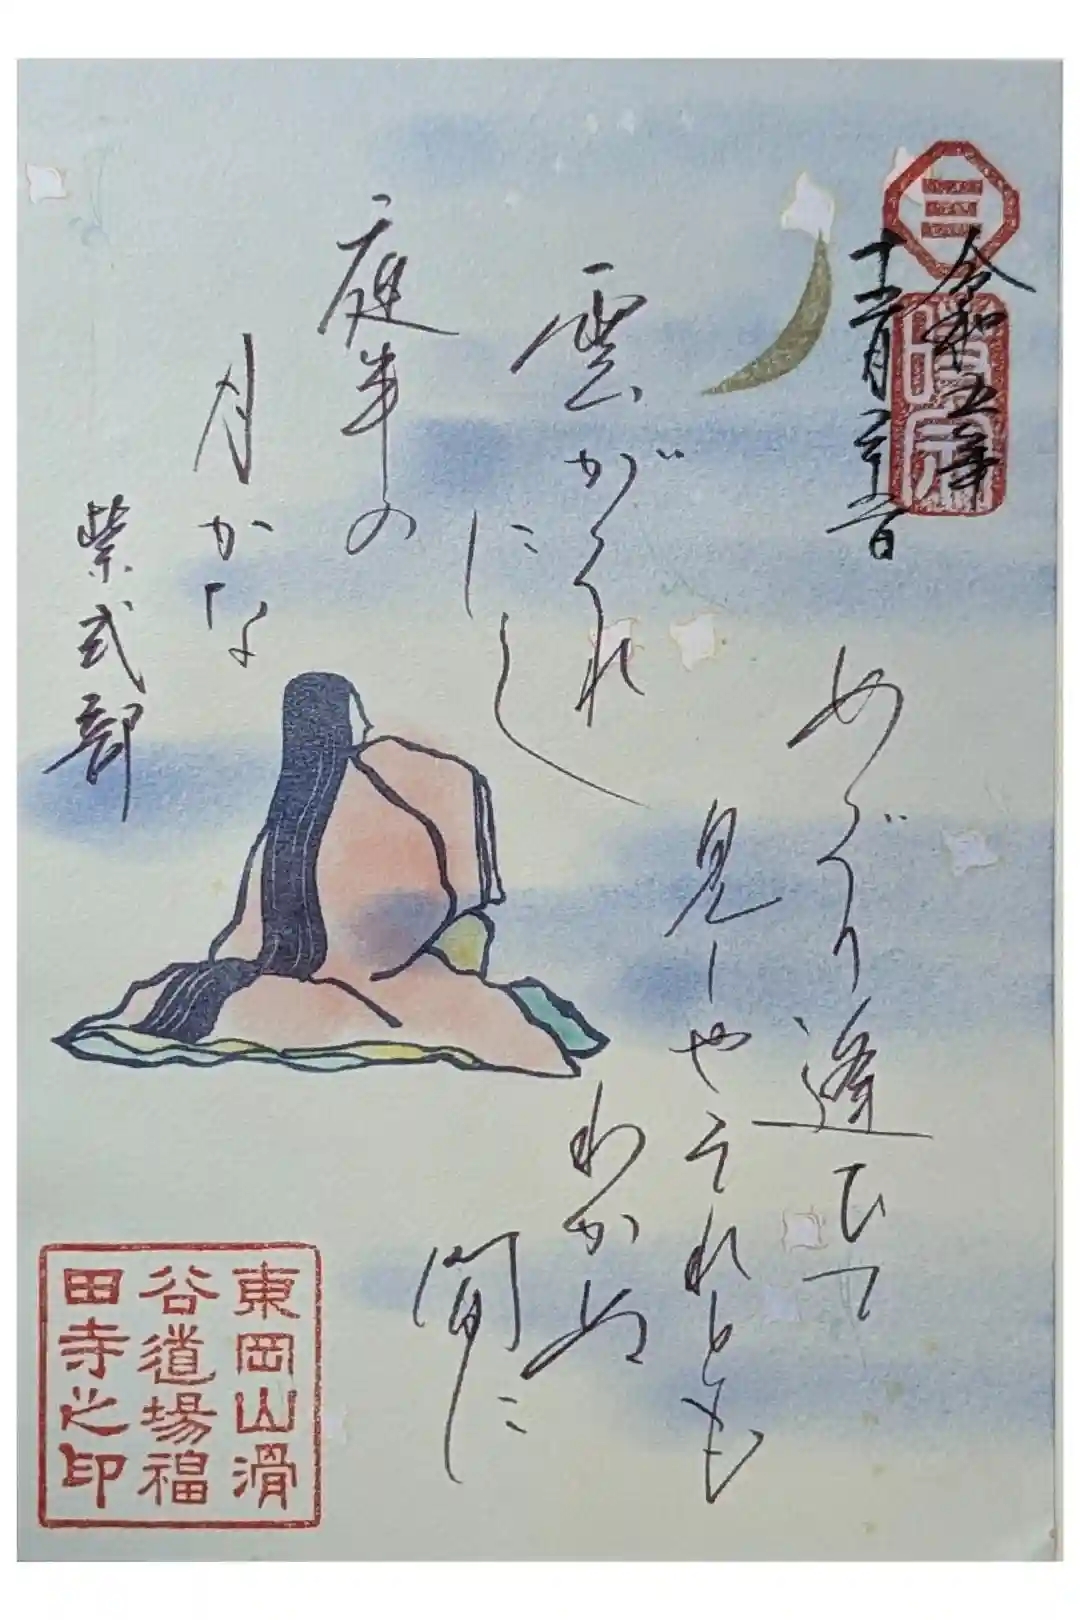 令和五年
十二月
めぐり逢ひて
見しやそれとも
わかぬ
間に
雲がくれ
にし
庭半の
月かな
紫式部
東岡山滑
谷道場福
田寺之印